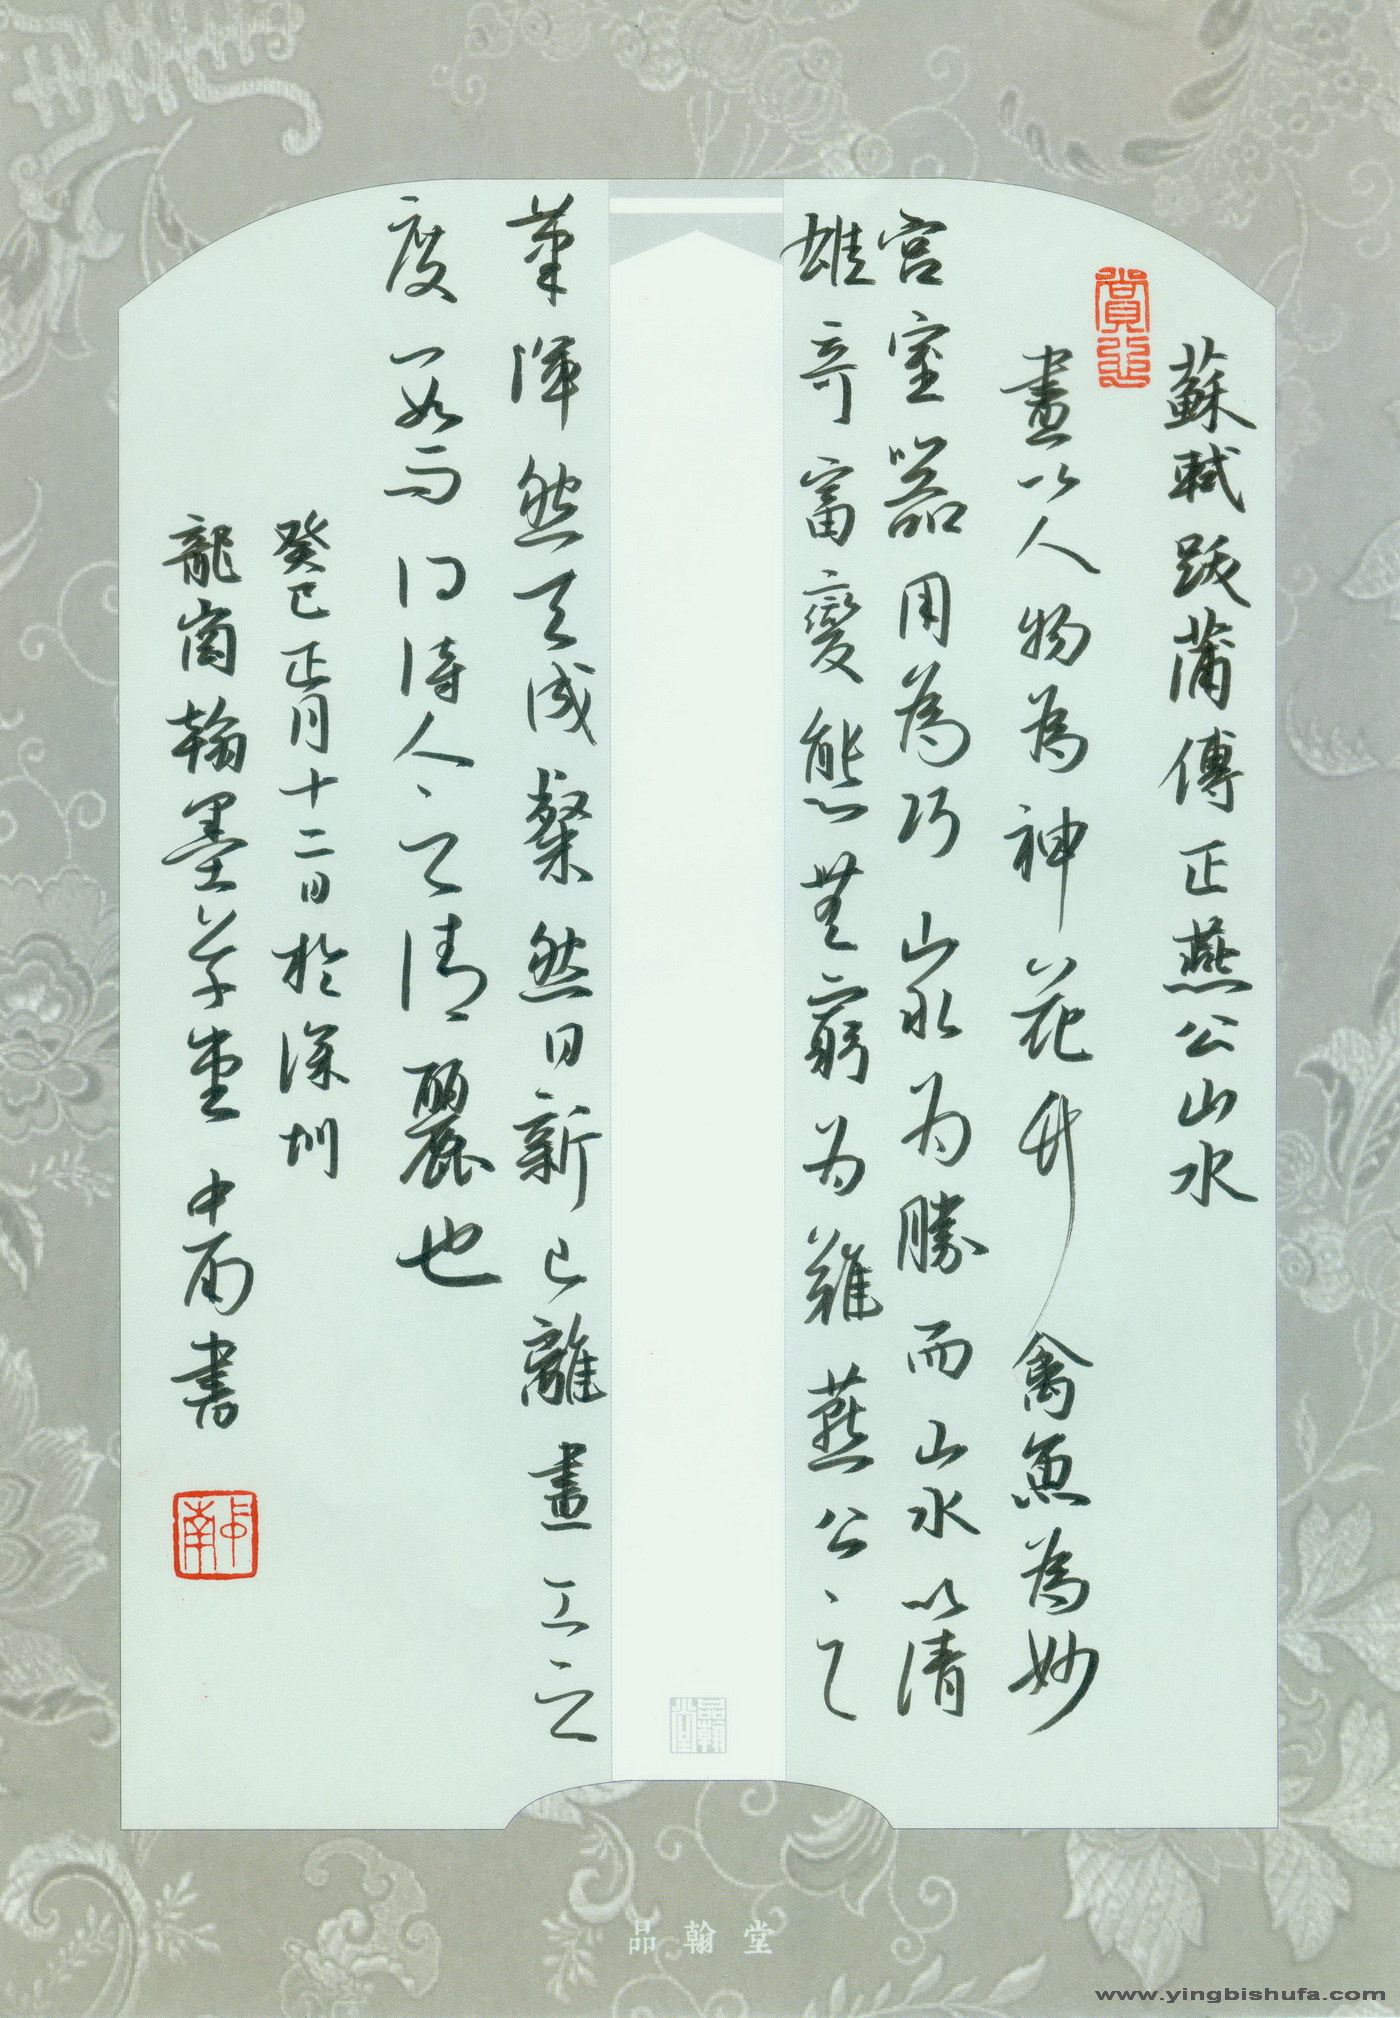 蘇軾跋蒲傳正燕公山水
畫以人物為神花竹禽魚為妙
宮室器用為巧山水为勝而山水以清
雄奇富變態無窮为難燕公之
筆渾然天成粲然日新已離畫工之
度而得詩人之清麗也
癸巳正月十二日於深圳
龍崗翰墨草堂中南書
品翰堂
品翰堂
www.yingbishufa.com